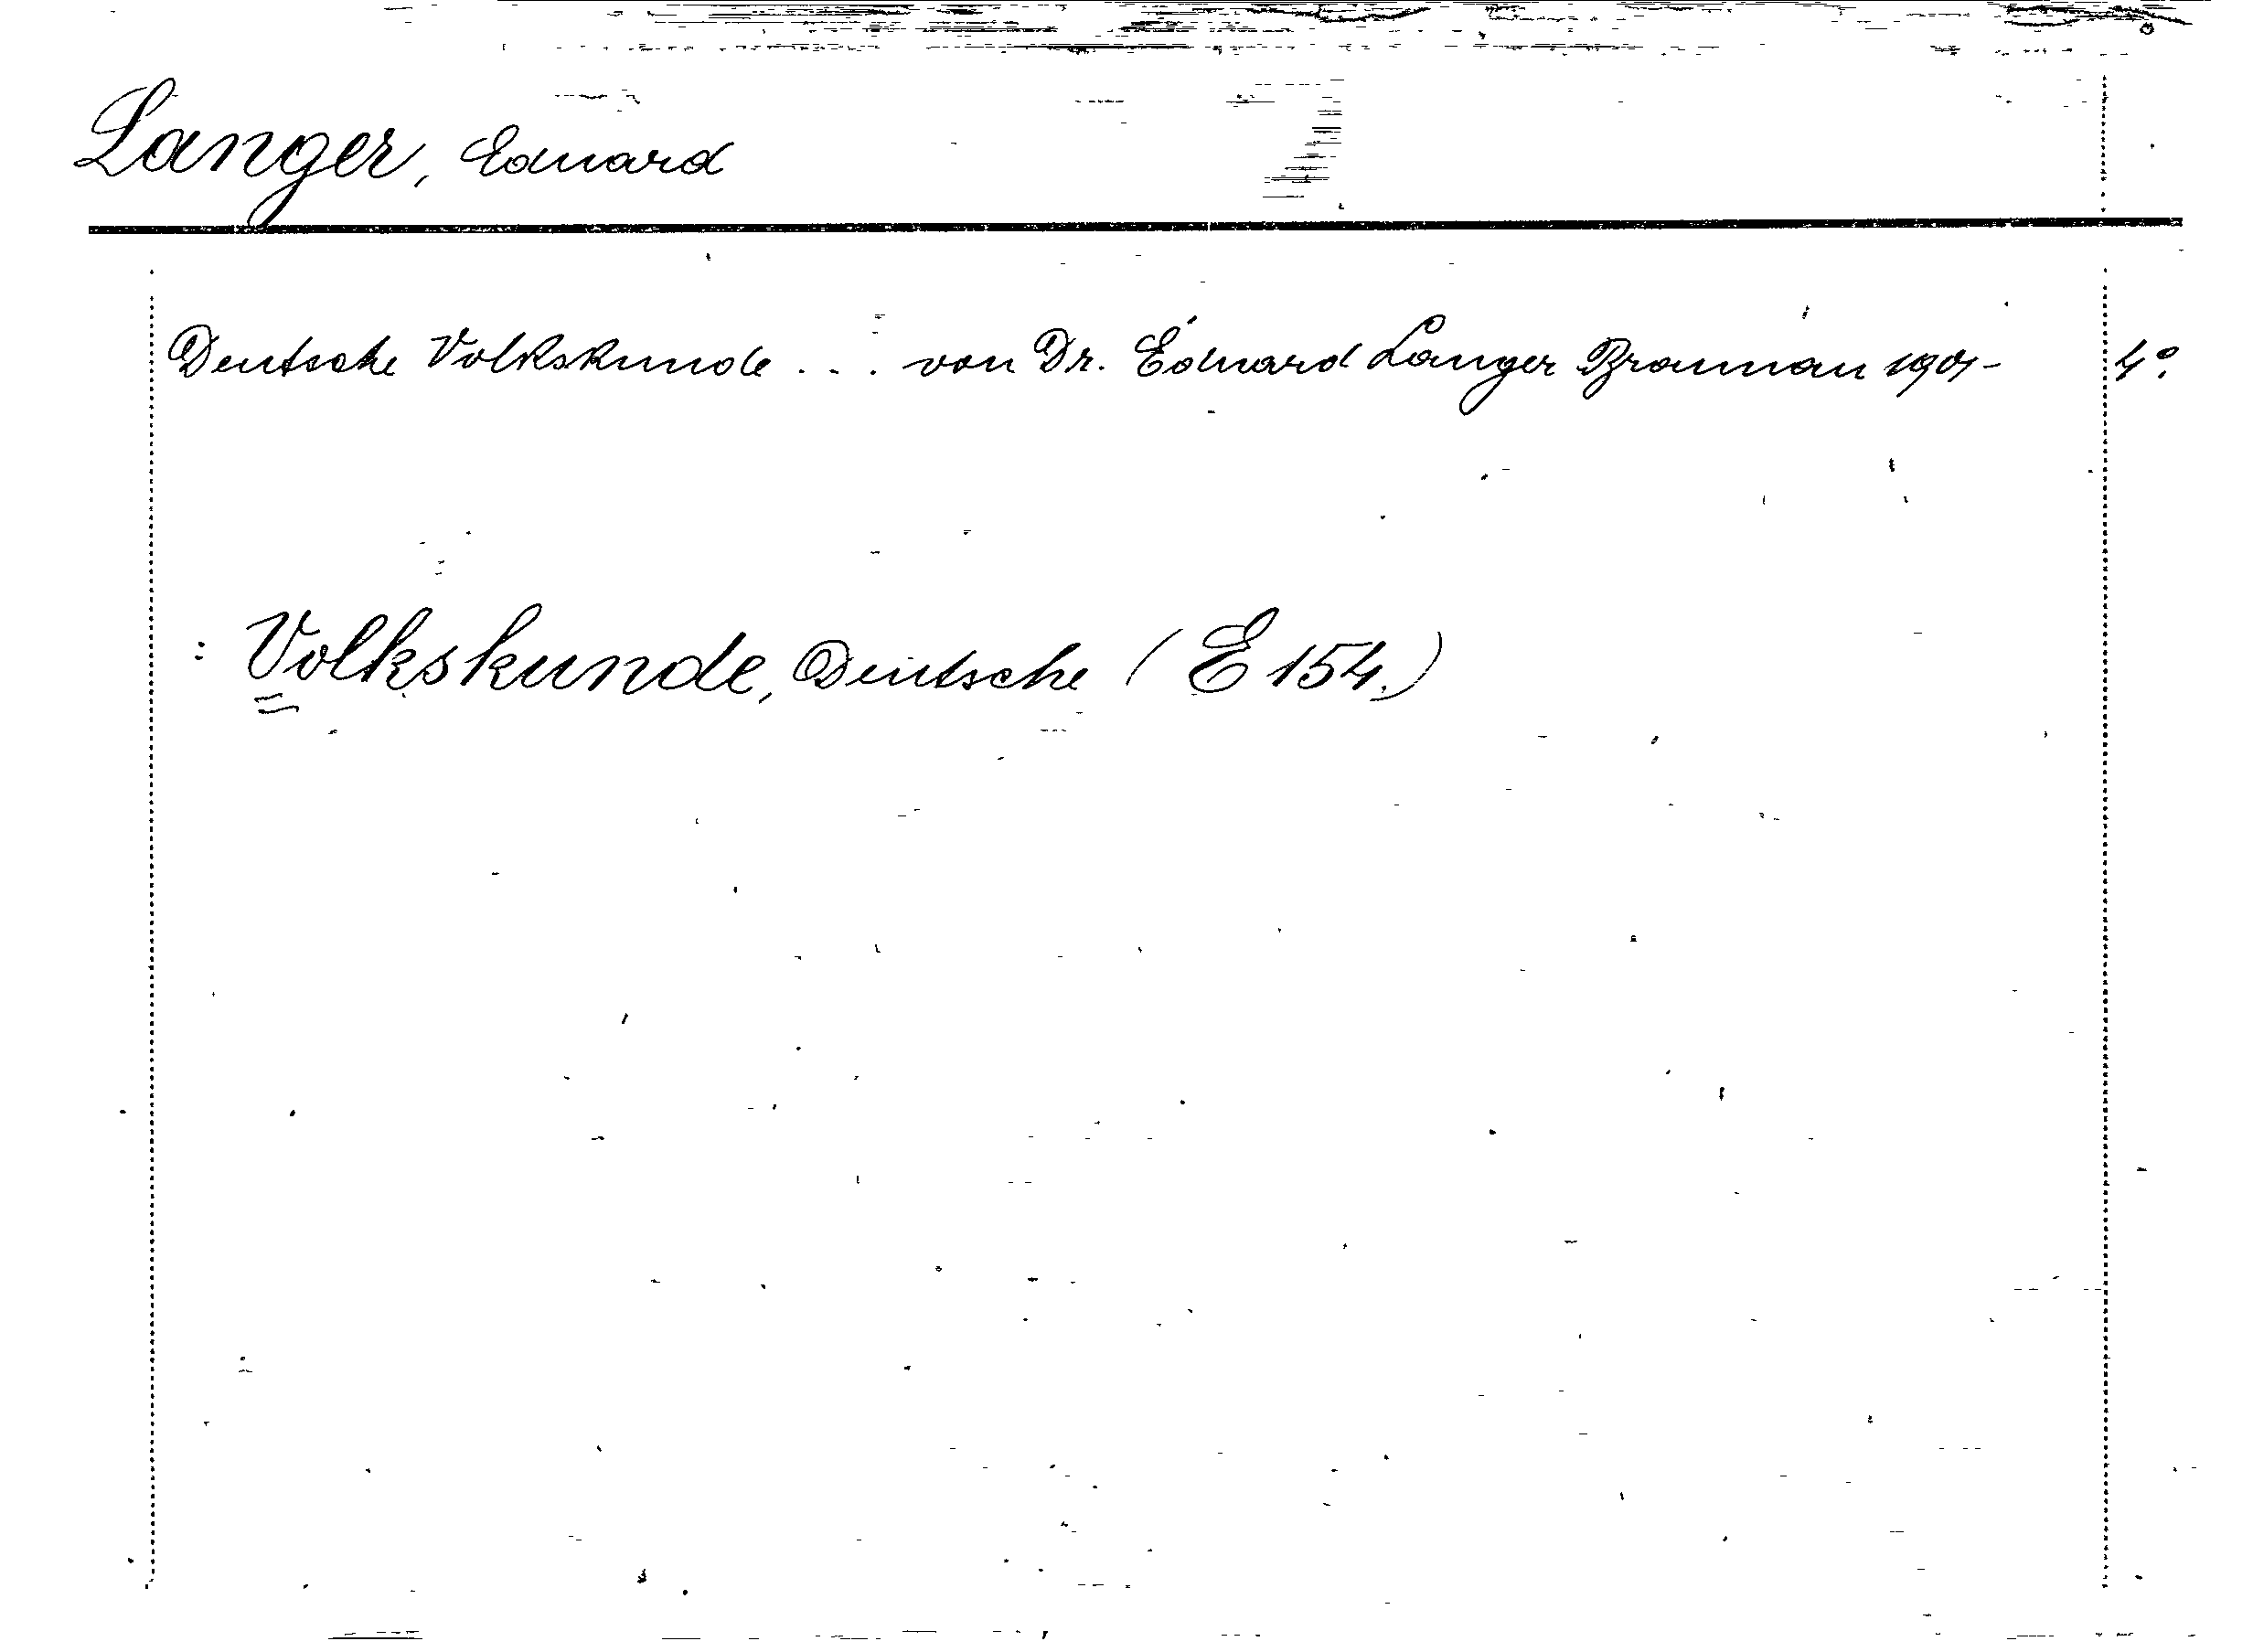 Langer, Eduard
Deutsche Volkskunde ... von Dr. Eduard Langer Braunau 1901- 4°.
: Volkskunde, Deutsche (E 154.)